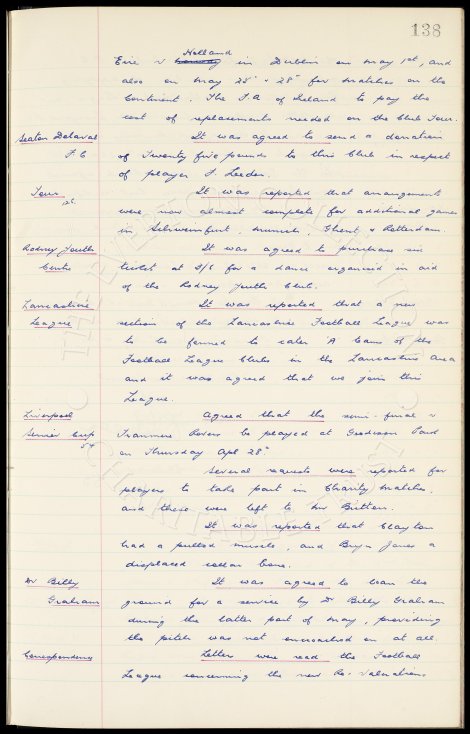 138
Holland
Eire v in Dublin on May 1st, and
also on May 25th & 28th for matches on the
Continent. The F.A of Ireland to pay the
cost of replacements needed on the Club Tour.
Seaton Delaval It was agreed to send a donation
F.C of Twenty five pounds to this Club in respect
of player S. Leeder.
Tour It was reported that arrangements
were now almost complete for additional games
in Schweinfurt, Munich, Ghent & Rotterdam.
Rodney Youth It was agreed to purchase six
Centre ticket at 5/6 for a dance organised in aid
of the Rodney Youth Club.
Lancashire It was reported that a new
League section of the Lancashire Football League was
to be formed to cater 'A' teams of the
Football League Clubs in the Lancashire area
and it was agreed that we join this
League.
Liverpool Agreed that the semi-final v
Senior Cup Tranmere Rovers be played at Goodison Park
on Thursday Apl 28th
Several requests were reported for
players to take part in Charity matches,
and these were left to Mr Britton.
It was reported that Clayton
had a pulled muscle, and Bryn Jones a
displaced collar bone.
Dr Billy It was agreed to loan the
Graham ground for a service by Dr Billy Graham
during the latter part of May, providing
the pitch was not encroached on at all.
Correspondence Letters were read the Football
League concerning the new Re-Valuations